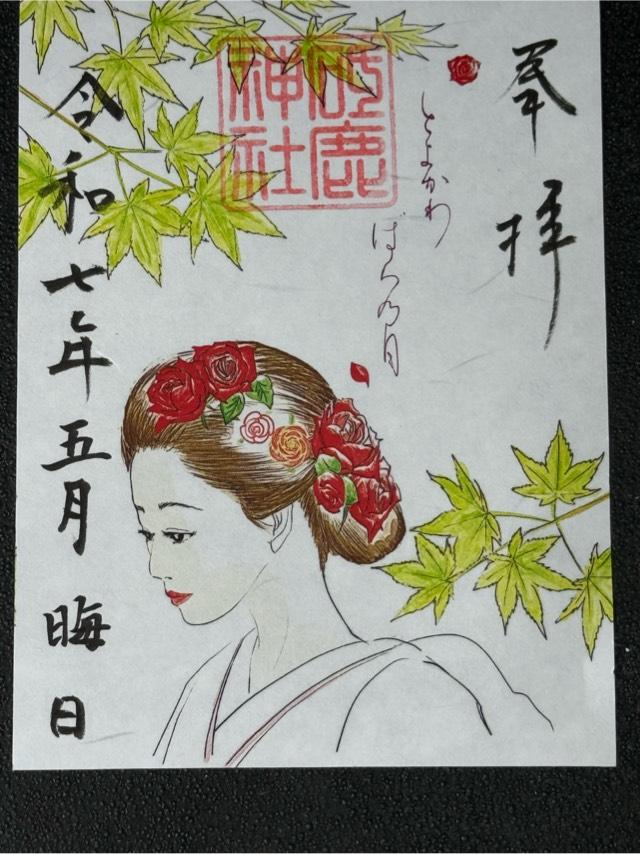 奉拝
とよかわ
ばら乃月
砥鹿
神社
令和七年五月晦日